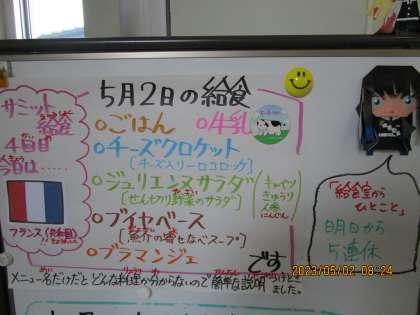 5月2日の給食
サミット
給食
4日目
今日は……
フランス(共和国)
○ごはん ○牛乳
○チーズクロケット
[チーズ入り一口コロッケ]
○ジュリエンヌサラダ
[せん切り野菜のサラダ]
キャベツ
きゅうり
にんじん
○ブイヤベース
[魚介の寄せなべスープ]
○ブラマンジェ
です
メニュー名だけだと どんな料理か分からないので 簡単な説明 ました。
「給食室から
ひとこと」
明日から
5連休
2023/05/02 08:24